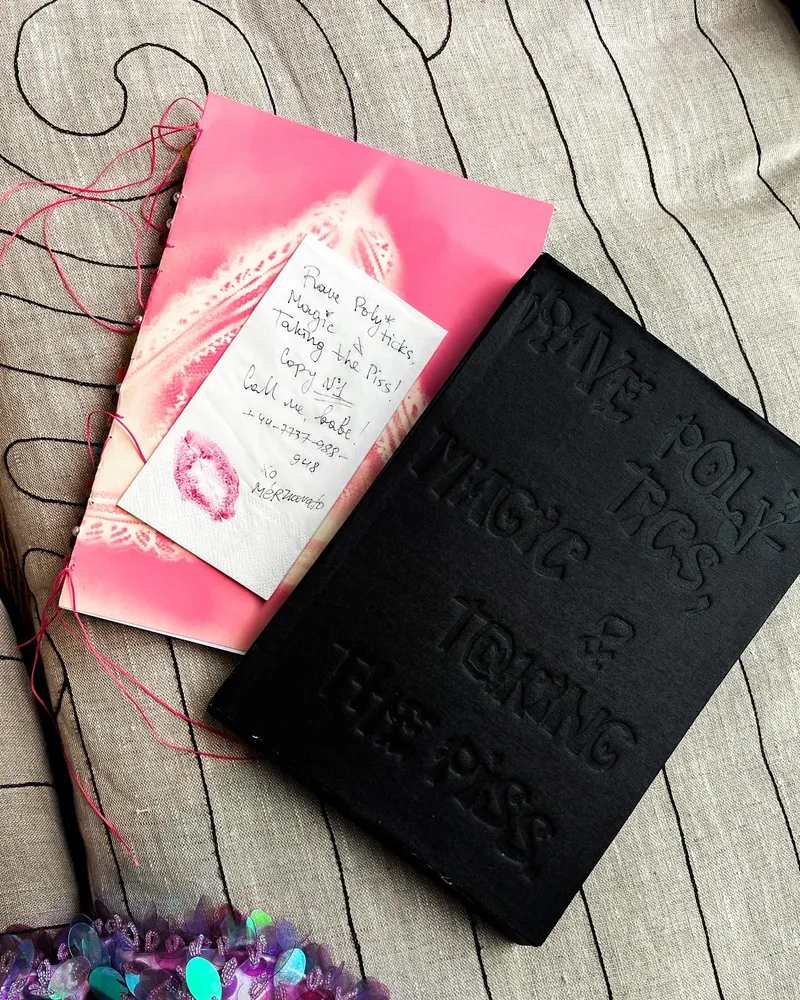 Rave Poly*ticks,
Magic &
Taking the Piss!
Copy №1
Call me, babe!
+44-7737-988-
948
xo
RAVE POLY-
TICS,
MAGIC
&
TAKING
THE PISS.